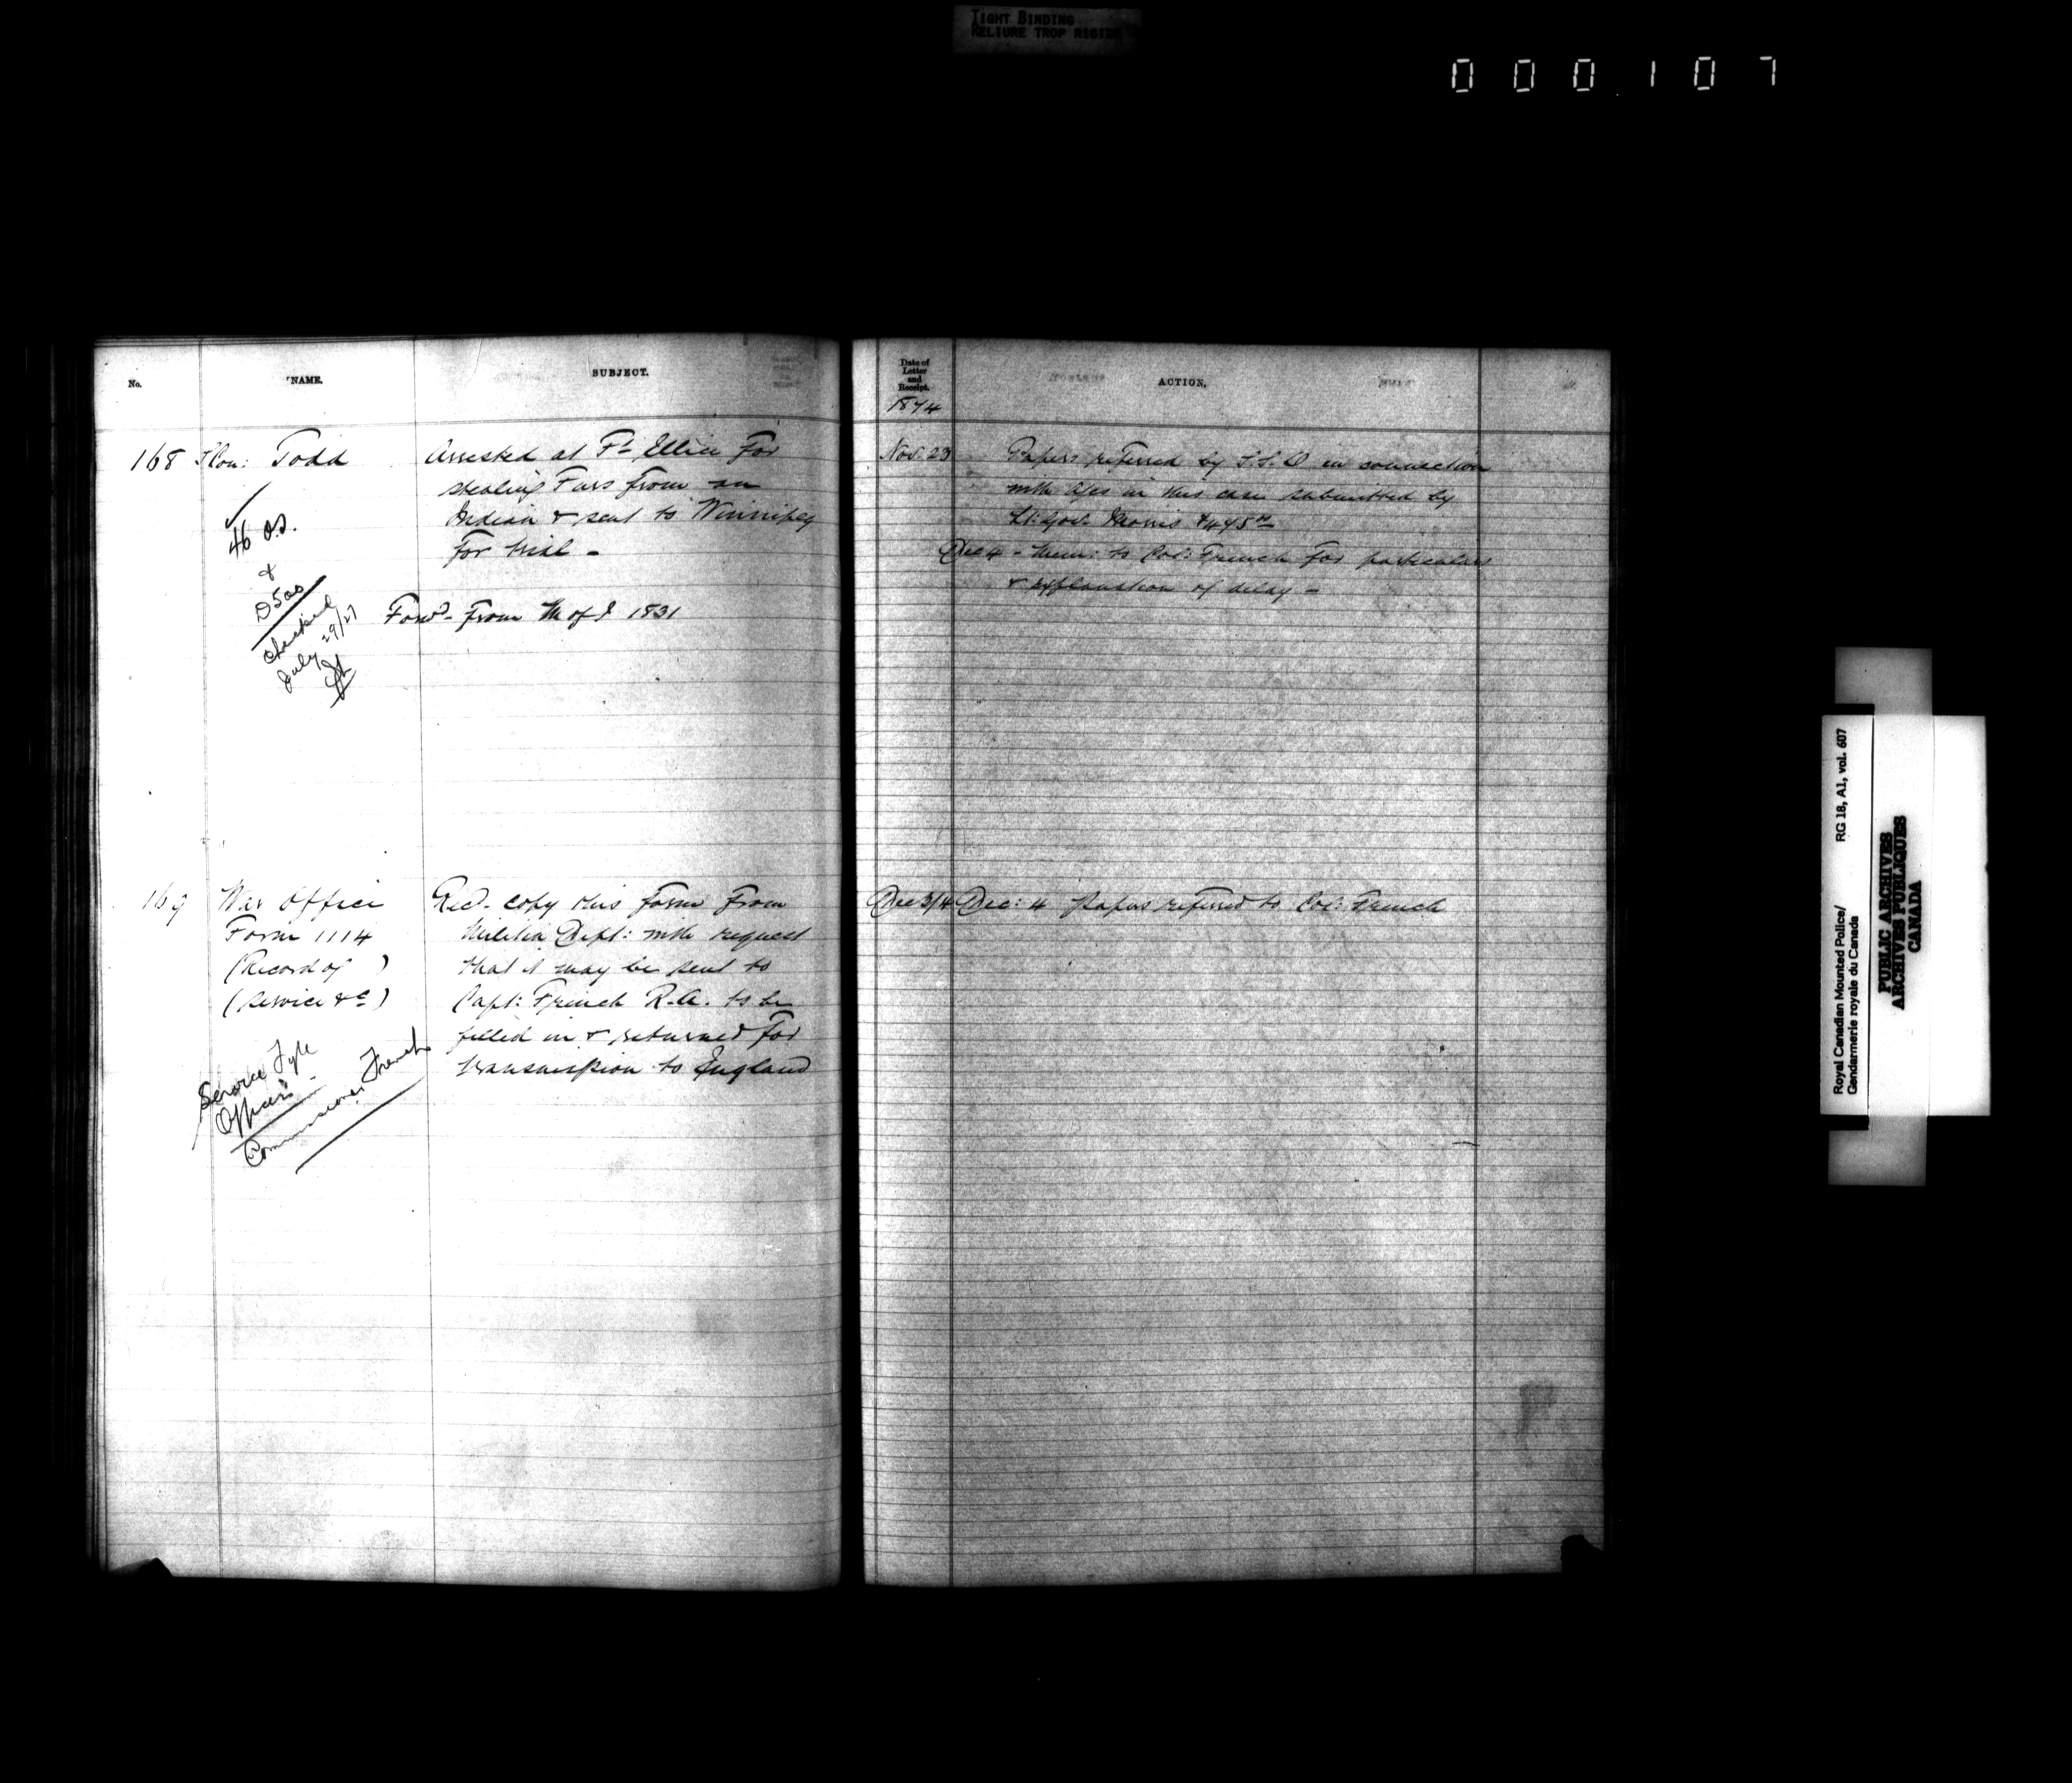 TIGHT BINDING
RELIURE TROP RIGIDE
000107
No.
NAME.
SUBJECT.
Date of
Letter
and
Receipt.
ACTION.
1874
168 Todd
Arrested at Ft Ellice for
stealing Furs from an
Indian & sent to Winnipeg
for trial -
Forwd. from M of I 1831
46 O.S.
&
D500
Checked
July 29/27
Nov. 23
Papers referred by S.S.D in connection
with a/cs in this case submitted by
Lt: Gov. Morris
Dec 4 - Mem: to Col: French for particulars
& explanation of delay -
169 War Office
Form 1114
(Record of )
(Service &c)
Recd. copy this form from
Militia Dept: with request
that it may be sent to
Capt: French R.A. to be
filled in & returned for
transmission to England
Service Fyle
Officers
Commissioner French
Dec 3/4 Dec: 4 Papers referred to Col: French
Royal Canadian Mounted Police/ RG 18, A1, vol. 607
Gendarmerie royale du Canada
PUBLIC ARCHIVES
ARCHIVES PUBLIQUES
CANADA